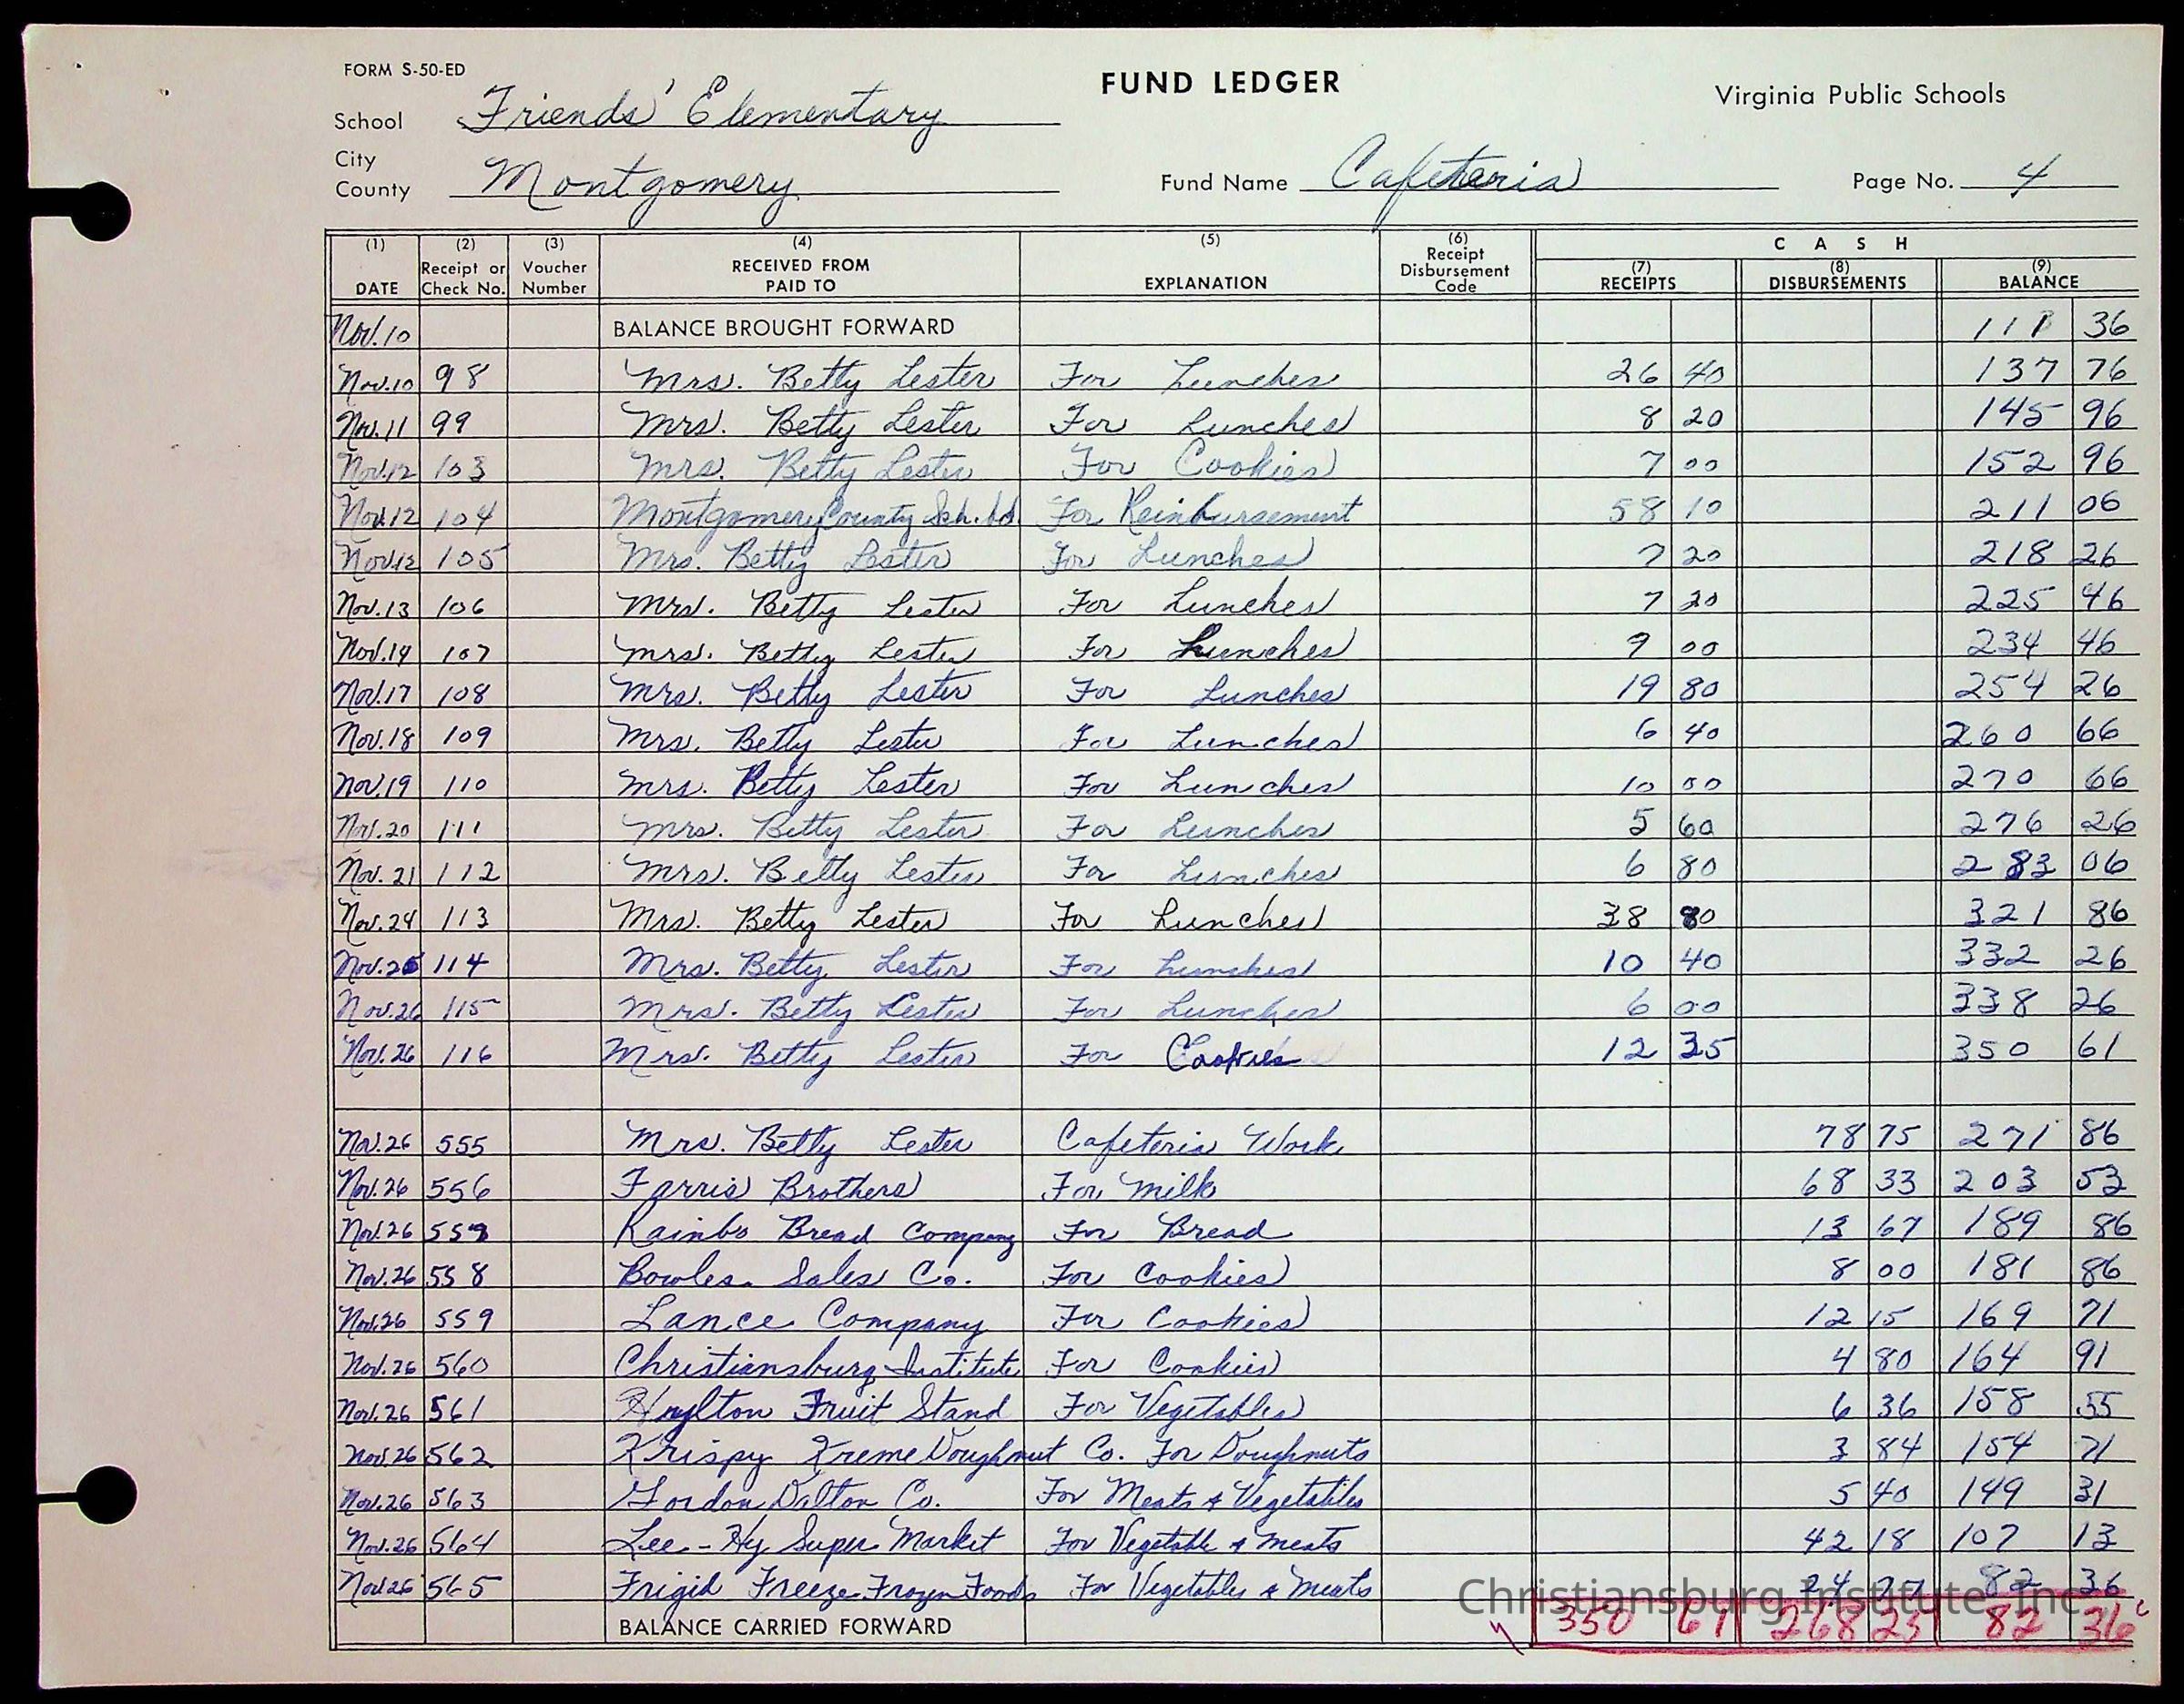 FORM S-50-ED
FUND LEDGER
Virginia Public Schools
School Friends' Elementary
City
County Montgomery
Fund Name Cafeteria
Page No. 4
(1) (2) (3) (4) (5) (6) C A S H
DATE Receipt or Check No. Voucher Number RECEIVED FROM PAID TO EXPLANATION Receipt Disbursement Code (7) RECEIPTS (8) DISBURSEMENTS (9) BALANCE
Nov. 10 BALANCE BROUGHT FORWARD 111 36
Nov. 10 98 Mrs. Betty Lester For Lunches 26 40 137 76
Nov. 11 99 Mrs. Betty Lester For Lunches 8 20 145 96
Nov. 12 103 Mrs. Betty Lester For Cookies 7 00 152 96
Nov. 12 104 Montgomery County Sch. bd. For Reinbursement 58 10 211 06
Nov. 12 105 Mrs. Betty Lester For Lunches 7 20 218 26
Nov. 13 106 Mrs. Betty Lester For Lunches 7 20 225 46
Nov. 14 107 Mrs. Betty Lester For Lunches 9 00 234 46
Nov. 17 108 Mrs. Betty Lester For Lunches 19 80 254 26
Nov. 18 109 Mrs. Betty Lester For Lunches 6 40 260 66
Nov. 19 110 Mrs. Betty Lester For Lunches 10 00 270 66
Nov. 20 111 Mrs. Betty Lester For Lunches 5 60 276 26
Nov. 21 112 Mrs. Betty Lester For Lunches 6 80 283 06
Nov. 24 113 Mrs. Betty Lester For Lunches 38 80 321 86
Nov. 25 114 Mrs. Betty Lester For Lunches 10 40 332 26
Nov. 26 115 Mrs. Betty Lester For Lunches 6 00 338 26
Nov. 26 116 Mrs. Betty Lester For Cookies 12 35 350 61
Nov. 26 555 Mrs. Betty Lester Cafeteria Work 78 75 271 86
Nov. 26 556 Farris Brothers For Milk 68 33 203 53
Nov. 26 557 Rainbo Bread Company For Bread 13 67 189 86
Nov. 26 558 Bowles Sales Co. For Cookies 8 00 181 86
Nov. 26 559 Lance Company For Cookies 12 15 169 71
Nov. 26 560 Christiansburg Institute For Cookies 4 80 164 91
Nov. 26 561 Hylton Fruit Stand For Vegetables 6 36 158 55
Nov. 26 562 Krispy Kreme Doughnut Co. For Doughnuts 3 84 154 71
Nov. 26 563 Gordon Dalton Co. For Meats & Vegetables 5 40 149 31
Nov. 26 564 Lee-Hy Super Market For Vegetable & Meats 42 18 107 13
Nov. 26 565 Frigid Freeze Frozen Foods For Vegetables & Meats 24 77 82 36
Christiansburg Institute, Inc
BALANCE CARRIED FORWARD 350 61 268 25 82 36